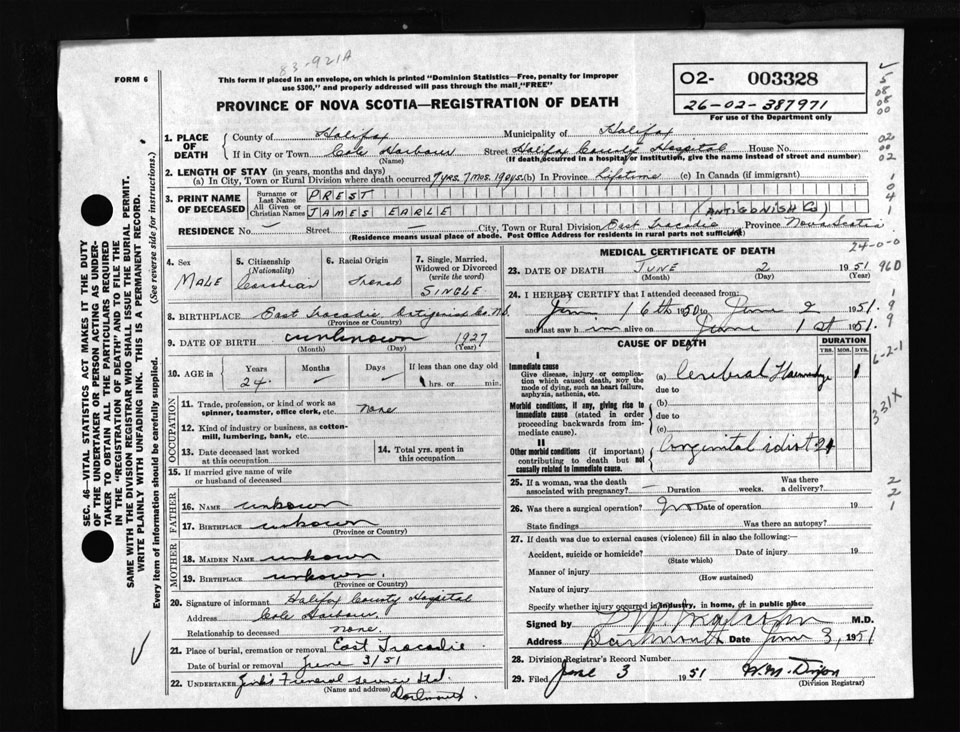 83-921A
FORM 6
This form if placed in an envelope, on which is printed "Dominion Statistics—Free, penalty for improper
use $300," and properly addressed will pass through the mail, "FREE"
PROVINCE OF NOVA SCOTIA—REGISTRATION OF DEATH
02- 003328
26-02-387971
For use of the Department only
1. PLACE OF DEATH
County of Halifax Municipality of Halifax
If in City or Town Cole Harbour Street Halifax County Hospital House No.
(Name) (If death occurred in a hospital or institution, give the name instead of street and number)
2. LENGTH OF STAY (in years, months and days)
(a) In City, Town or Rural Division where death occurred 7yrs. 7mos. 19dys. (b) In Province Lifetime (c) In Canada (if immigrant)
3. PRINT NAME OF DECEASED
Surname or Last Name PREST
All Given or Christian Names JAMES EARLE
(ANTIGONISH Co)
RESIDENCE No. — Street — City, Town or Rural Division East Tracadie Province Nova Scotia
(Residence means usual place of abode. Post Office Address for residents in rural parts not sufficient)
4. Sex
MALE
5. Citizenship
(Nationality)
Canadian
6. Racial Origin
French
7. Single, Married,
Widowed or Divorced
(write the word)
SINGLE
8. BIRTHPLACE East Tracadie Antigonish Co. N.S.
(Province or Country)
9. DATE OF BIRTH unknown 1927
(Month) (Day) (Year)
10. AGE in
Years Months Days If less than one day old
24 hrs. or min.
OCCUPATION
11. Trade, profession, or kind of work as
spinner, teamster, office clerk, etc. none
12. Kind of industry or business, as cotton-
mill, lumbering, bank, etc.
13. Date deceased last worked
at this occupation
14. Total yrs. spent in
this occupation
15. If married give name of wife
or husband of deceased
FATHER
16. NAME unknown
17. BIRTHPLACE unknown
(Province or Country)
MOTHER
18. MAIDEN NAME unknown
19. BIRTHPLACE unknown.
(Province or Country)
20. Signature of informant Halifax County Hospital
Address Cole Harbour.
Relationship to deceased none
21. Place of burial, cremation or removal East Tracadie
Date of burial or removal June 3/51
22. UNDERTAKER Zink's Funeral service Ltd.
(Name and address) Dartmouth.
MEDICAL CERTIFICATE OF DEATH
23. DATE OF DEATH JUNE 2 1951
(Month) (Day) (Year)
24. I HEREBY CERTIFY that I attended deceased from:
16th 1950 to June 2 1951.
and last saw him alive on June 1st 1951.
CAUSE OF DEATH
DURATION
YRS. MOS. DYS.
I
Immediate cause
Give disease, injury or complica-
tion which caused death, not the
mode of dying, such as heart failure,
asphyxia, asthenia, etc.
(a) Cerebral Haemorrhage 1
due to
Morbid conditions, if any, giving rise to
immediate cause (stated in order
proceeding backwards from im-
mediate cause).
(b)
due to
(c)
II
Other morbid conditions (if important)
contributing to death but not
causally related to immediate cause.
Congenital idiot 24
25. If a woman, was the death
associated with pregnancy? — Duration weeks. Was there
a delivery?
26. Was there a surgical operation? no Date of operation 19
State findings Was there an autopsy?
27. If death was due to external causes (violence) fill in also the following:—
Accident, suicide or homicide? Date of injury 19
(State which)
Manner of injury
(How sustained)
Nature of injury
Specify whether injury occurred in industry, in home, or in public place
Signed by M.D.
Address Dartmouth Date June 3, 1951
28. Division Registrar's Record Number
29. Filed June 3 1951 W.M. Dixon
(Division Registrar)
SEC. 46—VITAL STATISTICS ACT MAKES IT THE DUTY
OF THE UNDERTAKER OR PERSON ACTING AS UNDER-
TAKER TO OBTAIN ALL THE PARTICULARS REQUIRED
IN THE "REGISTRATION OF DEATH" AND TO FILE THE
SAME WITH THE DIVISION REGISTRAR WHO SHALL ISSUE THE BURIAL PERMIT.
WRITE PLAINLY WITH UNFADING INK. THIS IS A PERMANENT RECORD.
Every item of information should be carefully supplied. (See reverse side for instructions.)
5
08
08
00
02
00
02
1
04
1
24-0-0
960
1
9
9
6-2-1
331X
2
2
1